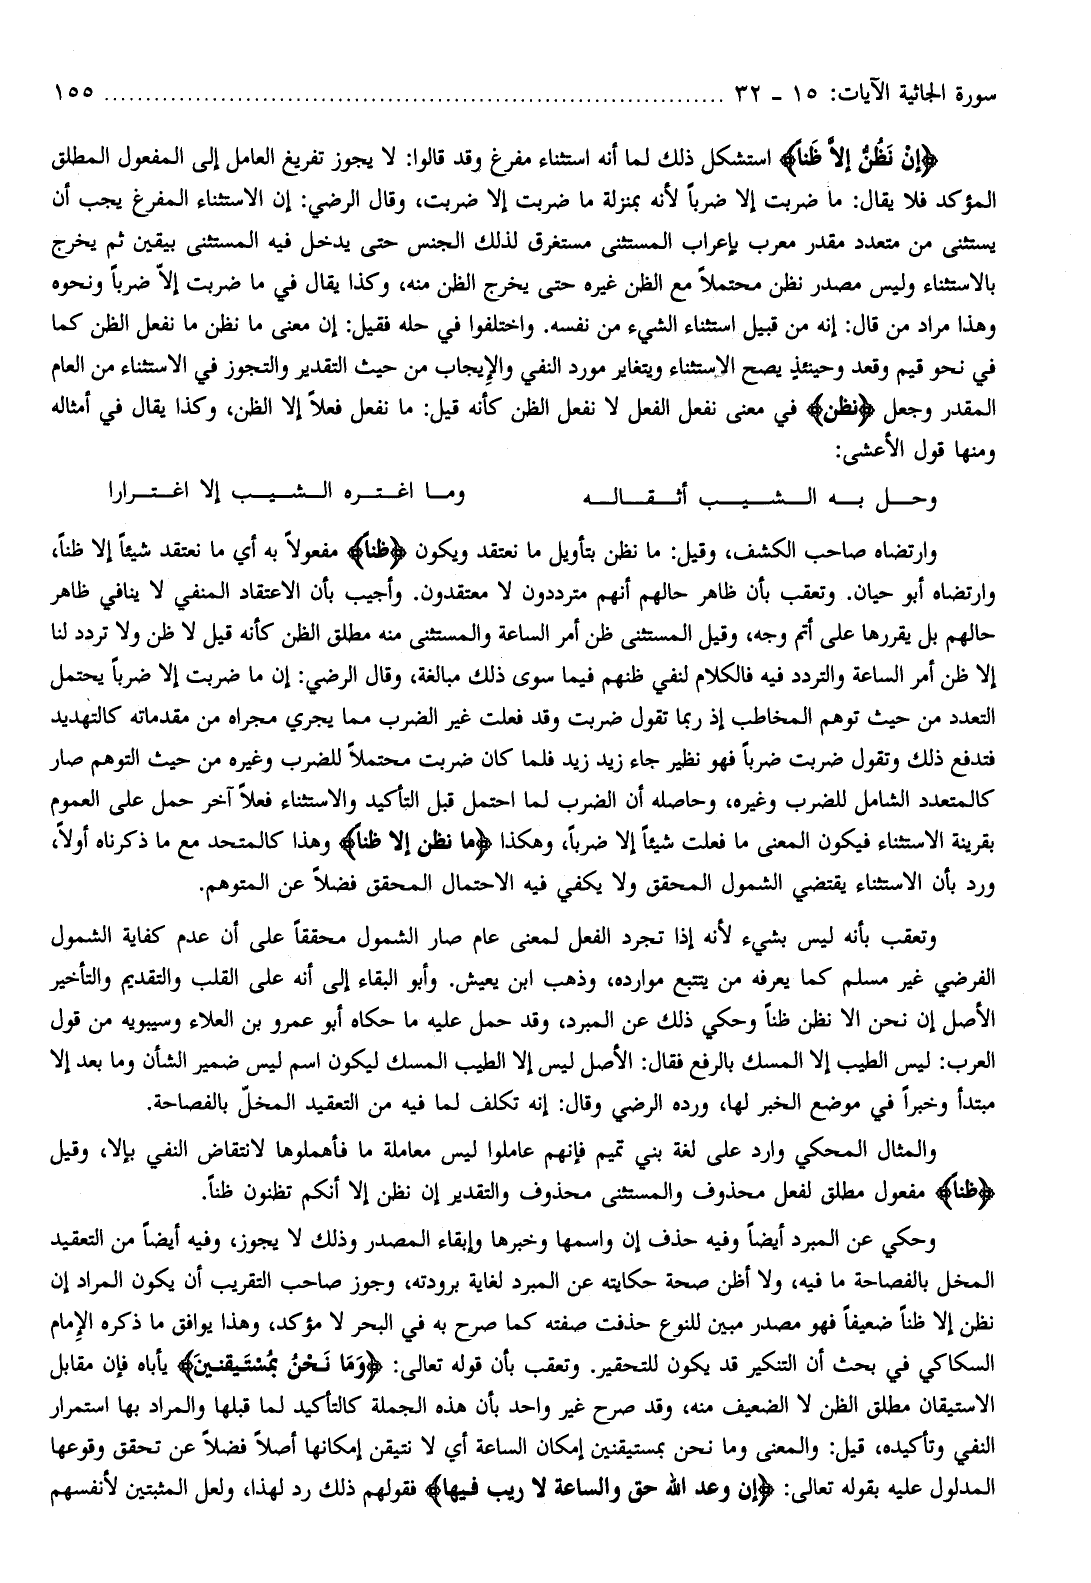 سورة الجاثية الآيات: ١٥ ـ ٣٢ ........................................................................ ١٥٥
﴿إنْ نَظُنُّ إلاَّ ظَناً﴾ استشكل ذلك لما أنه استثناء مفرغ وقد قالوا: لا يجوز تفريغ العامل إلى المفعول المطلق
المؤكد فلا يقال: ما ضربت إلا ضرباً لأنه بمنزلة ما ضربت إلا ضربت، وقال الرضي: إن الاستثناء المفرغ يجب أن
يستثنى من متعدد مقدر معرب بإعراب المستثنى مستغرق لذلك الجنس حتى يدخل فيه المستثنى بيقين ثم يخرج
بالاستثناء وليس مصدر نظن محتملاً مع الظن غيره حتى يخرج الظن منه، وكذا يقال في ما ضربت إلاّ ضرباً ونحوه
وهذا مراد من قال: إنه من قبيل استثناء الشيء من نفسه. واختلفوا في حله فقيل: إن معنى ما نظن ما نفعل الظن كما
في نحو قيم وقعد وحينئذٍ يصح الاستثناء ويتغاير مورد النفي والإيجاب من حيث التقدير والتجوز في الاستثناء من العام
المقدر وجعل ﴿نظن﴾ في معنى نفعل الفعل لا نفعل الظن كأنه قيل: ما نفعل فعلاً إلا الظن، وكذا يقال في أمثاله
ومنها قول الأعشى:
وحـل بـه الـشـيـب أثـقـالـه وما اغـتـره الـشـيـب إلا اغـتـرارا
وارتضاه صاحب الكشف، وقيل: ما نظن بتأويل ما نعتقد ويكون ﴿ظناً﴾ مفعولاً به أي ما نعتقد شيئاً إلا ظناً،
وارتضاه أبو حيان. وتعقب بأن ظاهر حالهم أنهم مترددون لا معتقدون. وأجيب بأن الاعتقاد المنفي لا ينافي ظاهر
حالهم بل يقررها على أتم وجه، وقيل المستثنى ظن أمر الساعة والمستثنى منه مطلق الظن كأنه قيل لا ظن ولا تردد لنا
إلا ظن أمر الساعة والتردد فيه فالكلام لنفي ظنهم فيما سوى ذلك مبالغة، وقال الرضي: إن ما ضربت إلا ضرباً يحتمل
التعدد من حيث توهم المخاطب إذ ربما تقول ضربت وقد فعلت غير الضرب مما يجري مجراه من مقدماته كالتهديد
فتدفع ذلك وتقول ضربت ضرباً فهو نظير جاء زيد زيد فلما كان ضربت محتملاً للضرب وغيره من حيث التوهم صار
كالمتعدد الشامل للضرب وغيره، وحاصله أن الضرب لما احتمل قبل التأكيد والاستثناء فعلاً آخر حمل على العموم
بقرينة الاستثناء فيكون المعنى ما فعلت شيئاً إلا ضرباً، وهكذا ﴿ما نظن إلا ظناً﴾ وهذا كالمتحد مع ما ذكرناه أولاً،
ورد بأن الاستثناء يقتضي الشمول المحقق ولا يكفي فيه الاحتمال المحقق فضلاً عن المتوهم.
وتعقب بأنه ليس بشيء لأنه إذا تجرد الفعل لمعنى عام صار الشمول محققاً على أن عدم كفاية الشمول
الفرضي غير مسلم كما يعرفه من يتتبع موارده، وذهب ابن يعيش. وأبو البقاء إلى أنه على القلب والتقديم والتأخير
الأصل إن نحن الا نظن ظناً وحكي ذلك عن المبرد، وقد حمل عليه ما حكاه أبو عمرو بن العلاء وسيبويه من قول
العرب: ليس الطيب إلا المسك بالرفع فقال: الأصل ليس إلا الطيب المسك ليكون اسم ليس ضمير الشأن وما بعد إلا
مبتدأ وخبراً في موضع الخبر لها، ورده الرضي وقال: إنه تكلف لما فيه من التعقيد المخلّ بالفصاحة.
والمثال المحكي وارد على لغة بني تميم فإنهم عاملوا ليس معاملة ما فأهملوها لانتقاض النفي بإلا، وقيل
﴿ظناً﴾ مفعول مطلق لفعل محذوف والمستثنى محذوف والتقدير إن نظن إلا أنكم تظنون ظناً.
وحكي عن المبرد أيضاً وفيه حذف إن واسمها وخبرها وإبقاء المصدر وذلك لا يجوز، وفيه أيضاً من التعقيد
المخل بالفصاحة ما فيه، ولا أظن صحة حكايته عن المبرد لغاية برودته، وجوز صاحب التقريب أن يكون المراد إن
نظن إلا ظناً ضعيفاً فهو مصدر مبين للنوع حذفت صفته كما صرح به في البحر لا مؤكد، وهذا يوافق ما ذكره الإمام
السكاكي في بحث أن التنكير قد يكون للتحقير. وتعقب بأن قوله تعالى: ﴿وَمَا نَحْنُ بِمُسْتَيقنينَ﴾ يأباه فإن مقابل
الاستيقان مطلق الظن لا الضعيف منه، وقد صرح غير واحد بأن هذه الجملة كالتأكيد لما قبلها والمراد بها استمرار
النفي وتأكيده، قيل: والمعنى وما نحن بمستيقنين إمكان الساعة أي لا نتيقن إمكانها أصلاً فضلاً عن تحقق وقوعها
المدلول عليه بقوله تعالى: ﴿إن وعد الله حق والساعة لا ريب فيها﴾ فقولهم ذلك رد لهذا، ولعل المثبتين لأنفسهم